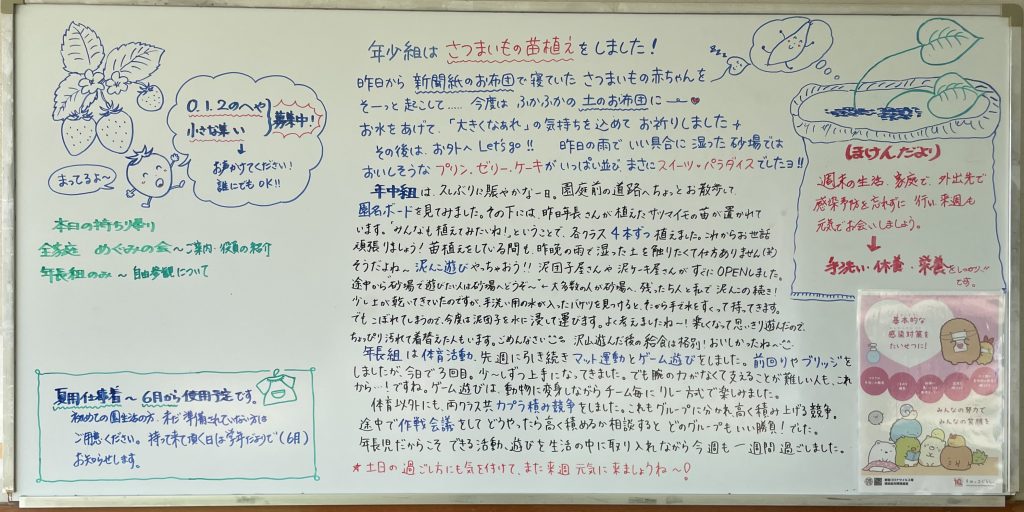 0.1.2のへや
小さな集い
募集中!
お声がけてください!
誰にでもOK!!
まってるよ~
本日の持ち帰り
全家庭 めぐみの会~ご案内・役員の紹介
年長組のみ~自由参観について
夏用仕事着~6月から使用予定です。
初めての園生活の方、まだ準備されていない方は
ご用意ください。持って来て頂く日は"学年だより"で(6月)
お知らせします。
年少組は さつまいもの苗植えをしました!
昨日から 新聞紙のお布団で寝ていた さつまいもの赤ちゃんを
そーっと 起こして..... 今度は ふかふかの 土のお布団に
お水をあげて、「大きくなぁれ」の気持ちを込めて お祈りしました
その後は、お外へ Let's go!! 昨日の雨で いい具合に 湿った 砂場では
おいしそうな プリン・ゼリー・ケーキが いっぱい並び、まさに スイーツ・パラダイスでしたヨ!!
年中組は、久しぶりに賑やかな一日。園庭前の道路へちょっとお散歩して
園名ボードを見てみました。その下には、昨日年長さんが植えたサツマイモの苗が置かれて
います。"みんなも植えてみたいね!"ということで、各クラス4本ずつ植えました。これからお世話
頑張りましょう! 苗植えをしている間も、昨晩の雨で湿った土を触りたくて仕方ありません(笑)
そうだよね~ 泥んこ遊びやっちゃおう!! 泥団子屋さんや泥ケーキ屋さんがすぐにOPENしました。
途中から"砂場で遊びたい人は砂場へどうぞ~" ←大多数の人が砂場へ、残った人と私で泥んこの続き!
少し土が乾いてきていたのですが、手洗い用の水が入ったバケツを見つけると、たから手で水をすくって持ってきます。
でもこぼれてしまうので、今度は泥団子を水に浸して運びます。よく考えましたね~! 楽しくなって思いっきり遊んだので、
ちょっぴり汚れて着替えた人もいます。ごめんなさい 沢山遊んだ後の給食は格別! おいしかったね~
年長組は 体育活動、先週に引き続き マット運動とゲーム遊びをしました。前回りやブリッジを
しましたが、今日で3回目。少~しずつ上手になってきました。でも腕の力がなくて支えることが難しい人も、これ
から…!ですね。ゲーム遊びは、動物に変身しながらチーム毎にリレー方式で楽しみました。
体育以外にも、両クラス共 カプラ積み競争をしました。これもグループに分かれ、高く積み上げる競争。
途中で作戦会議をして どうやったら高く積めるか相談すると どのグループもいい勝負!でした。
年長児だからこそできる活動、遊びを生活の中に取り入れながら今週も一週間過ごしました。
★土日の過ごし方にも気を付けて、また来週 元気に来ましょうね~!
zzz
ほけんだより
週末の生活、家庭で、外出先で
感染予防を忘れずに 行い、来週も
元気でお会いしましょう。
手洗い・休養・栄養をしっかり!!
です。
基本的な
感染対策を
たいせつに!
みんなの努力で
みんなの笑顔を